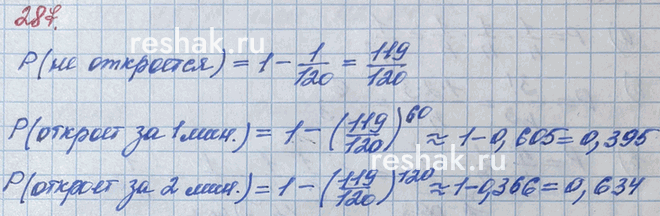 287.
reshak.ru
P(не откроется) = 1 - 1/120 = 119/120
P(откроет за 1 мин.) = 1 - (119/120)^60 ≈ 1-0,605=0,395
reshak.ru
P(откроет за 2 мин.) = 1 - (119/120)^120 ≈ 1-0,366=0,634